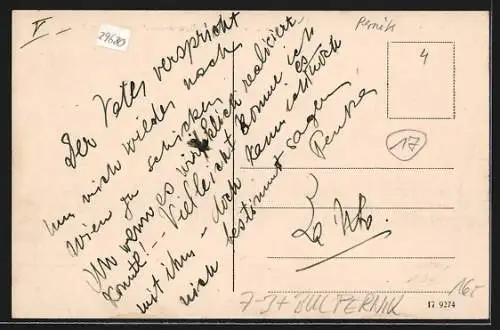 V.
29680
Pernik
4
17
Der Vater verspricht
mich wieder nach
Wien zu schicken
Um wenn es wirklich realisiert
könnte! -- Vielleicht komme ich
mit ihm - doch kann ich es
nich bestimmt sagen
Penka
7-J+ BULPERNIK
16.-
17 9274